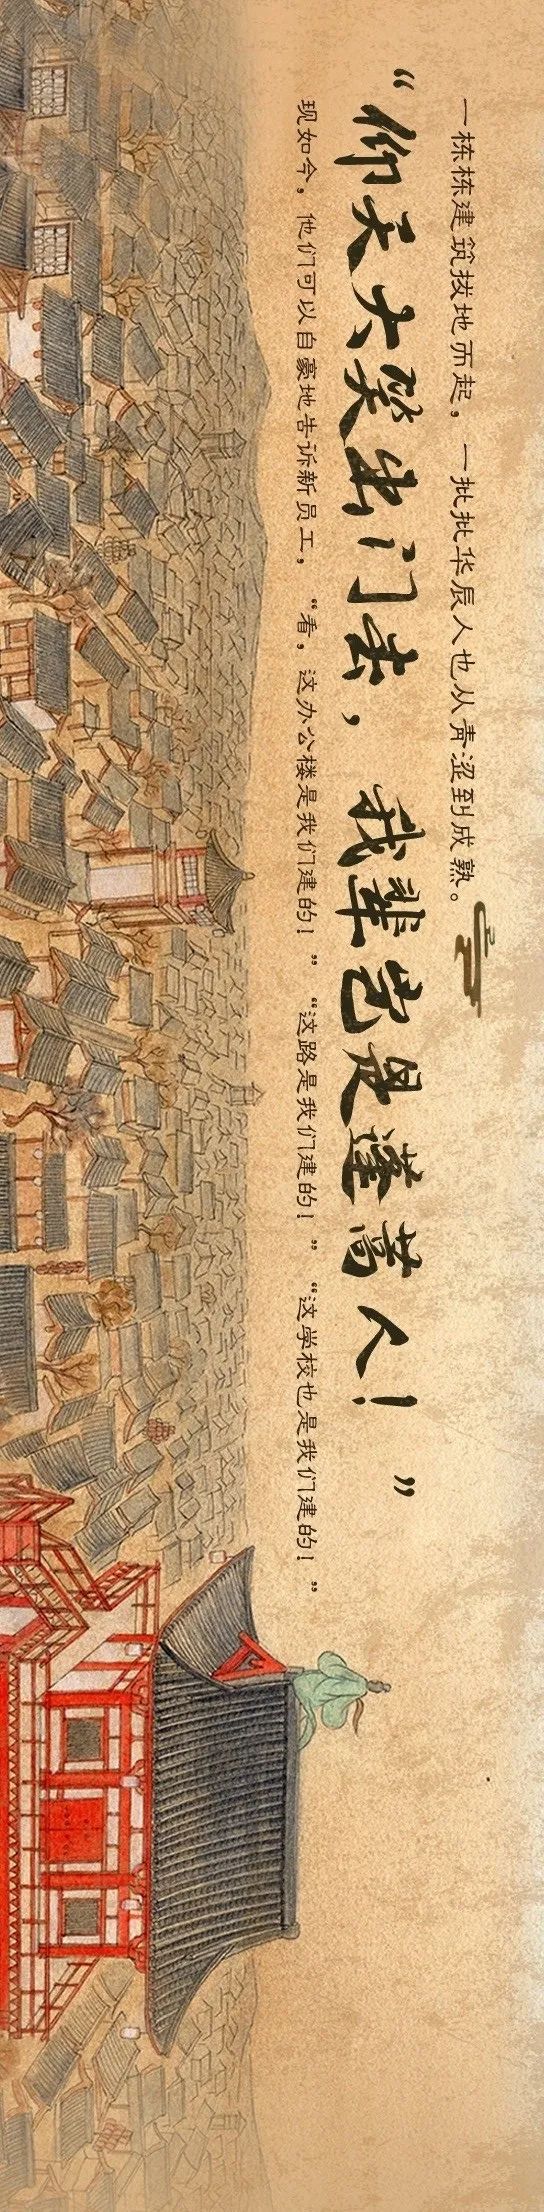 一栋栋建筑拔地而起，一批批华辰人也从青涩到成熟。
“仰天大笑出门去，我辈岂是蓬蒿人！”
现如今，他们可以自豪地告诉新员工，“看，这办公楼是我们建的！”“这路是我们建的！”“这学校也是我们建的！”